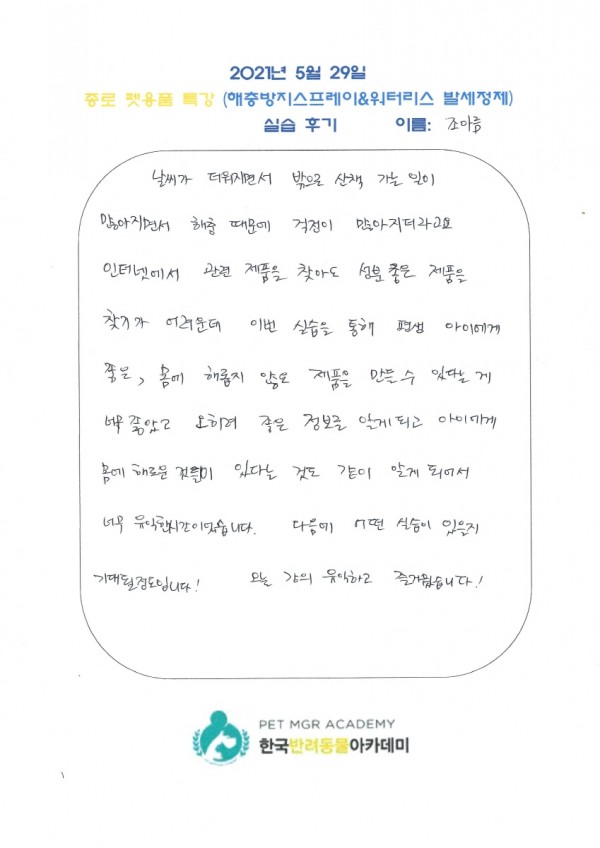 2021년 5월 29일
종로 펫용품 특강 (해충방지스프레이&워터리스 발세정제)
실습 후기 이름: 조아름
날씨가 더워지면서 밖으로 산책 가는 일이
많아지면서 해충 때문에 걱정이 많아지더라고요
인터넷에서 관련 제품을 찾아도 성분 좋은 제품을
찾기가 어려운데 이번 실습을 통해 평생 아이에게
좋은, 몸에 해롭지 않은 제품을 만들 수 있다는 게
너무 좋았고 오히려 좋은 정보를 알게되고 아이에게
몸에 해로운 것들이 있다는 것도 같이 알게 되어서
너무 유익한시간이었습니다. 다음에 어떤 실습이 있을지
기대될정도입니다! 오늘 강의 유익하고 즐거웠습니다!
PET MGR ACADEMY
한국반려동물아카데미